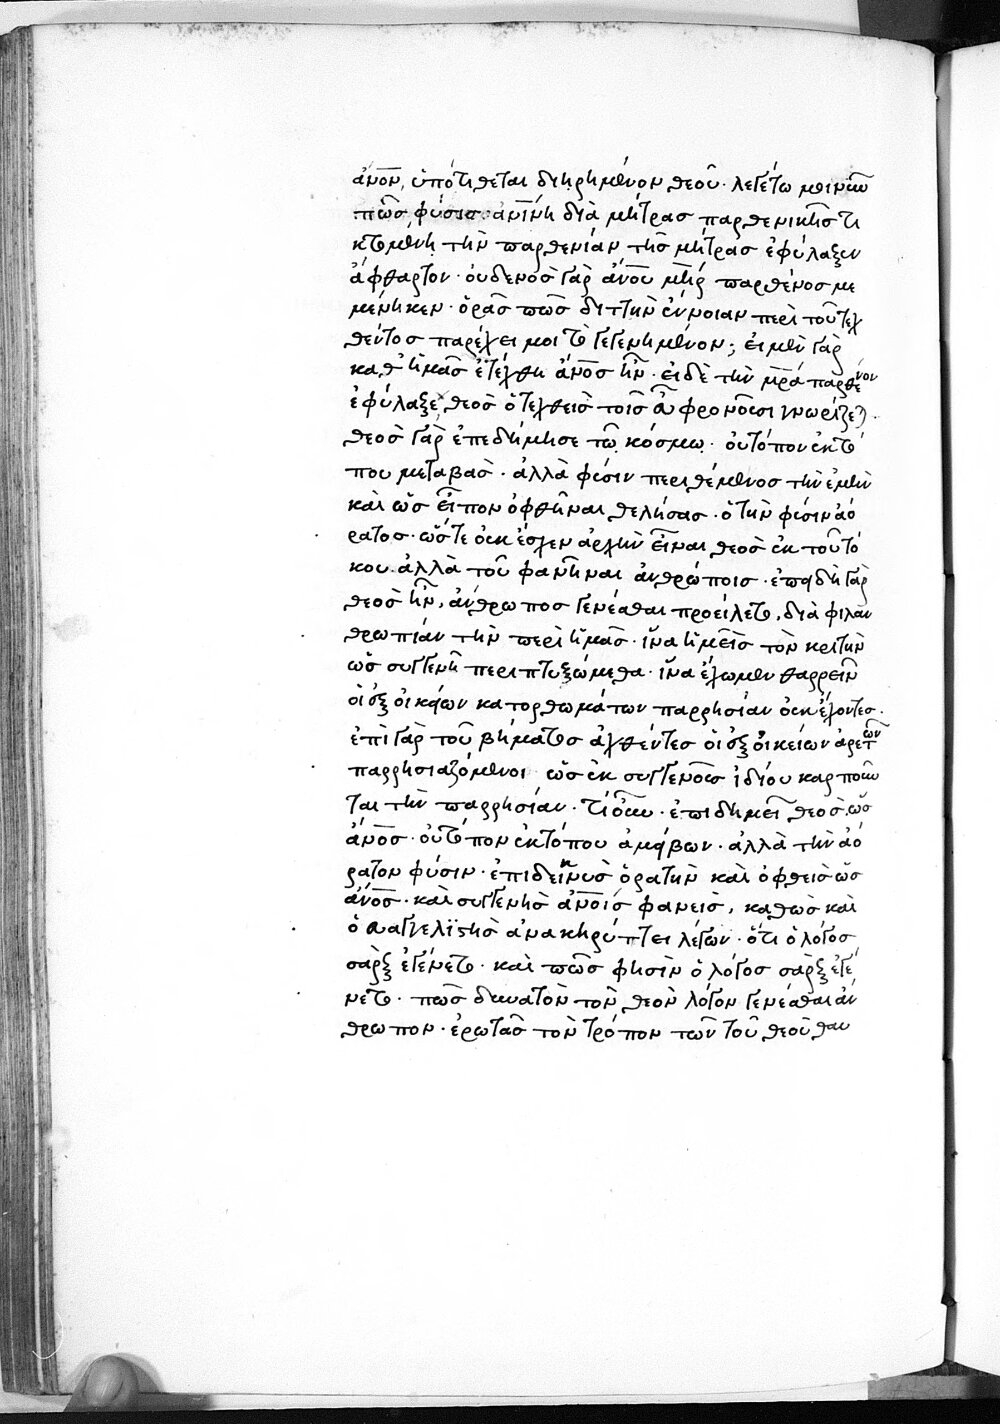 ἄν̅ο̅ν̅, ὑποτίθεται διῃρημένον θεοῦ· λεγέτω μοι νῦν
πῶς φύσις ἀν̅ί̅ν̅η διὰ μήτρας παρθενικῆς τι
κτομένη τὴν παρθενίαν τῆς μήτρας ἐφύλαξεν
ἄφθαρτον· οὐδενὸς γὰρ ἀν̅ο̅υ μ̅η̅ρ παρθένος με
μένηκεν· ὁρᾶς πῶς διττὴν ἔννοιαν περὶ τοῦ τεχ
θέντος παρέχει μοι τὸ γεγενημένον; εἰ μὲν γὰρ
καθ' ἡμᾶς ἐτέχθη ἄν̅ο̅ς ἦν· εἰ δὲ τὴν μ̅ρ̅α παρθένον
ἐφύλαξε, θεὸς ὁ τεχθεὶς τοῖς εὖ φρονοῦσι γνωρίζεται.
θεὸς γὰρ ἐπεδήμησε τῷ κόσμῳ· οὐ τόπον ἐκ τό
που μεταβὰς· ἀλλὰ φύσιν περιθέμενος τὴν ἐμὴν
καὶ ὡς εἶπον ὀφθῆναι θελήσας· ὁ τὴν φύσιν ἀό
ρατος· ὥστε οὐκ ἔσχεν ἀρχὴν εἶναι θεὸς ἐκ τοῦ τό
κου· ἀλλὰ τοῦ φανῆναι ἀνθρώποις· ἐπειδὴ γὰρ
θεὸς ἦν, ἄνθρωπος γενέσθαι προείλετο, διὰ φιλαν
θρωπίαν τὴν περὶ ἡμᾶς· ἵνα ἡμεῖς τὸν κριτὴν
ὡς συγγενῆ περιπτυξώμεθα· ἵνα ἔχωμεν θαρρεῖν
οἱ ἐξ οἰκείων κατορθωμάτων παρρησίαν οὐκ ἔχοντες·
ἐπὶ γὰρ τοῦ βήματος ἀχθέντες οἱ ἐξ οἰκείων ἀρετῶν
παρρησιαζόμενοι ὡς ἐκ συγγενοῦς ἰδίου καρποῦν
ται τὴν παρρησίαν· τί οὖν· ἐπιδημεῖ θεὸς, ὡς
ἄν̅ο̅ς· οὐ τόπον ἐκ τόπου ἀμείβων· ἀλλὰ τὴν ἀό
ρατον φύσιν· ἐπιδεικνὺς ὁρατὴν καὶ ὀφθεὶς ὡς
ἄν̅ο̅ς· καὶ συγγενὴς ἀν̅ο̅ις φανεὶς, καθὼς καὶ
ὁ εὐαγγελιστὴς ἀνακηρύττει λέγων· ὅτι ὁ λόγος
σὰρξ ἐγένετο· καὶ πῶς φησὶν ὁ λόγος σὰρξ ἐγέ
νετο· πῶς δυνατὸν τὸν θεὸν λόγον γενέσθαι ἄν
θρωπον· ἐρωτᾶς τὸν τρόπον τῶν τοῦ θεοῦ θαυ